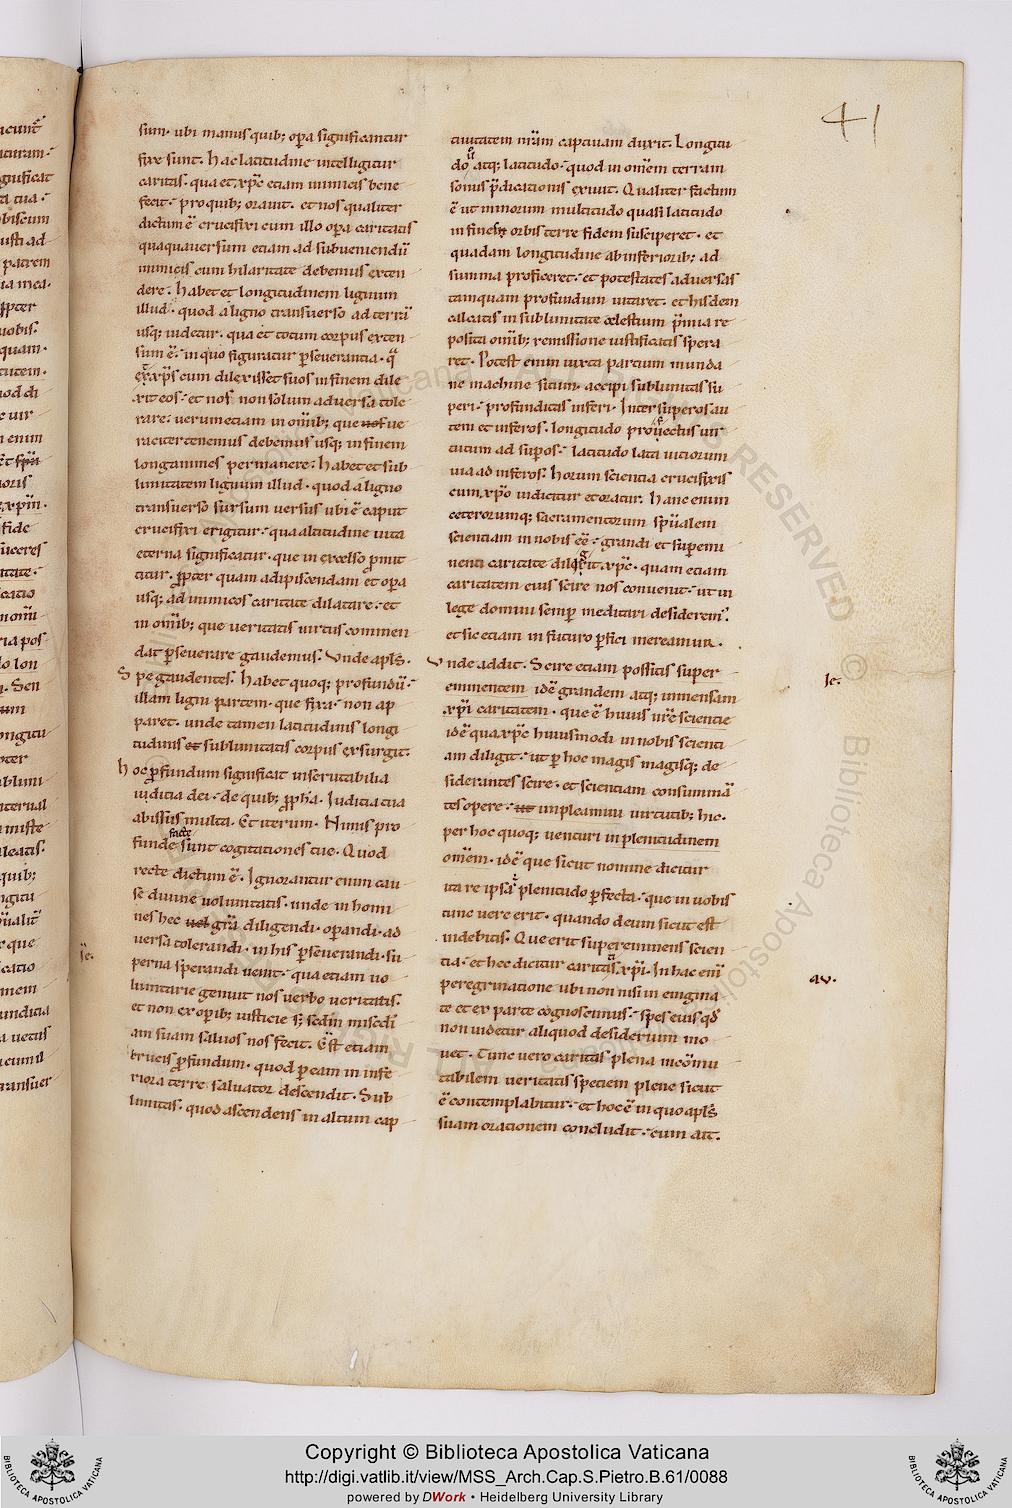 41
sum· ubi manus quib; oꝑa significantur
fixe sunt. hac latitudine intelligitur
caritas· qua et xp̄c etiam inimicis bene
fecit· pro quib; orauit· et nos qualiter
dictum ē crucifixi cum illo oꝑa caritatis
quaquauersum etiam ad subueniendū
inimicis cum hilaritate debemus exten
dere· habet et longitudinem lignum
illud· quod a ligno transuerso ad terrā
usq; uidetur· qua et totum corpus exten
sum ē· in quo figuratur ꝑseuerantia· qª
xp̄s cum dilexisset suos in finem dile
xit eos· et nos non solum aduersa tole
rare· uerum etiam in om̄ib; que ue
raciter tenemus debemus usq; in finem
longanimes permanere· habet et sub
limitatem lignum illud· quod a ligno
transuerso sursum uersus ubi ē caput
crucifixi erigitur· qua altitudine uita
eterna significatur· que in excelso ꝓmit
titur· ꝓpter quam adipiscendam et oꝑa
usq; ad inimicos caritate dilatare· et
in om̄ib; que ueritatis uirtus commen
dat ꝑseuerare gaudemus· Vnde apl̄s·
Spe gaudentes· habet quoq; profundū·
illam ligni partem· que fixa· non ap
paret· unde tamen latitudinis longi
tudinis et sublimitatis corpus exsurgit·
hoc ꝓfundum significat inscrutabilia
iudicia dei· de quib; ꝓph̄a· Iudicia tua
abissus multa· Et iterum· Nimis pro
facte
funde sunt cogitationes tue· Quod
recte dictum ē· Ignorantur enim cau
se diuine uoluntatis· unde in homi
nes hec uel grā diligendi· oꝑandi· ad
uersa tolerandi· in his ꝑseuerandi· su
perna sperandi uenit· qua etiam uo
luntarie genuit nos uerbo ueritatis·
et non ex oꝑib; iusticie s; sedm̄ misedī
am suam saluos nos fecit· Ē st etiam
crucis ꝓfundum· quod ꝑ eam in infe
riora terre saluator descendit· Sub
limitas· quod ascendens in altum cap
tiuitatem nr̄am captiuam duxit· Longitu
do atq; latitudo· quod in om̄em terram
sonus p̄dicationis exiuit· Qualiter factum
ē ut minorum multitudo quasi latitudo
in finem orbis terre fidem susciperet· et
quadam longitudine ab inferiorib; ad
summa proficeret· et potestates aduersas
tamquam profundum uitaret· et hisdem
calcatis in sublimitate celestium p̄mia re
posita om̄ib; remissione iustificatis spera
ret· Potest enim iuxta partium munda
ne machine situm· accipi sublimitas su
peri· profunditas inferi· Inter superos au
tem et inferos· longitudo prouectus uir
tutum ad suꝑos· latitudo lata uiciorum
uia ad inferos· horum scientia crucifixis
cum xp̄o indicitur et oratur· hanc enim
ceterorumq; sacramentorum spūalem
scientiam in nobis eē· grandi et suꝑemi
nenti caritate diligit xp̄c· quam etiam
caritatem eius scire nos conuenit· ut in
lege domini semꝑ meditari desiderem·
et sic etiam in futuro ꝑfici mereamur·
Vnde addit· Scire etiam possitis super
eminentem idē grandem atq; inmensam
xp̄i caritatem· que ē huius nr̄e scientie
idē qua xp̄c huiusmodi in nobis scienti
am diligit· ut ꝑ hoc magis magisq; de
siderantes scire· et scientiam consummā
tes opere· ut impleamini uirtutib; hic·
per hoc quoq; uenturi in plenitudinem
om̄em· idē que sicut nomine dicitur
ita re ipsā plenitudo ꝑfecta· que in uobis
tunc uere erit· quando deum sicut est
uidebitis· Que erit supereminens scien
tia· et hec dicitur caritas xp̄i· In hac eni
peregrinatione ubi non nisi in enigma
te et ex parte cognoscimus· spes eius qd̄
non uidetur aliquod desiderium mo
uet· Tunc uero caritas plena incōmu
tabilem ueritatis speciem plene sicut
ē contemplabitur· et hoc ē in quo apl̄s
suam orationem concludit· cum ait·
Ie·
au·
Copyright © Biblioteca Apostolica Vaticana
http://digi.vatlib.it/view/MSS_Arch.Cap.S.Pietro.B.61/0088
powered by DWork • Heidelberg University Library